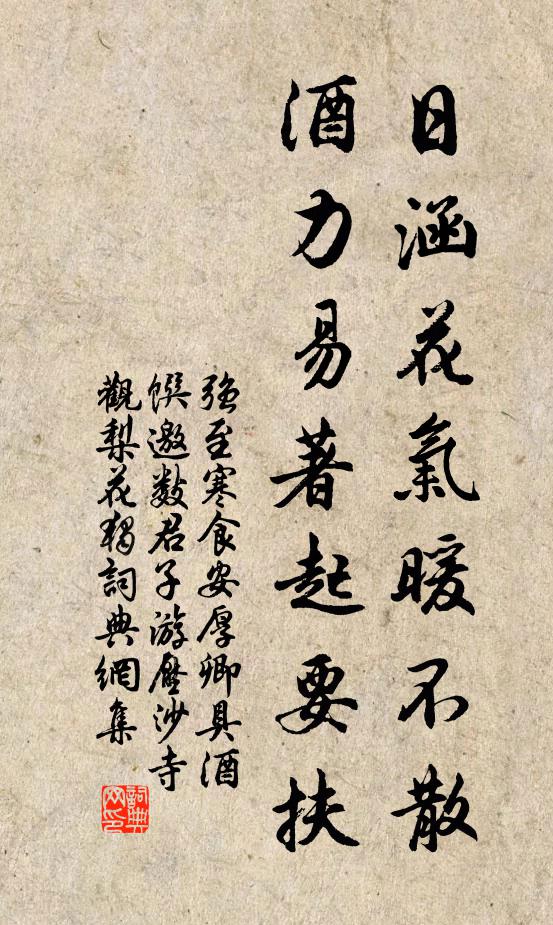 日涵花氣暖不散
酒力易著起要扶
強至寒食安厚卿具酒
饌邀数君子游壓沙寺
觀梨花獨詞典網集
詞典
网印